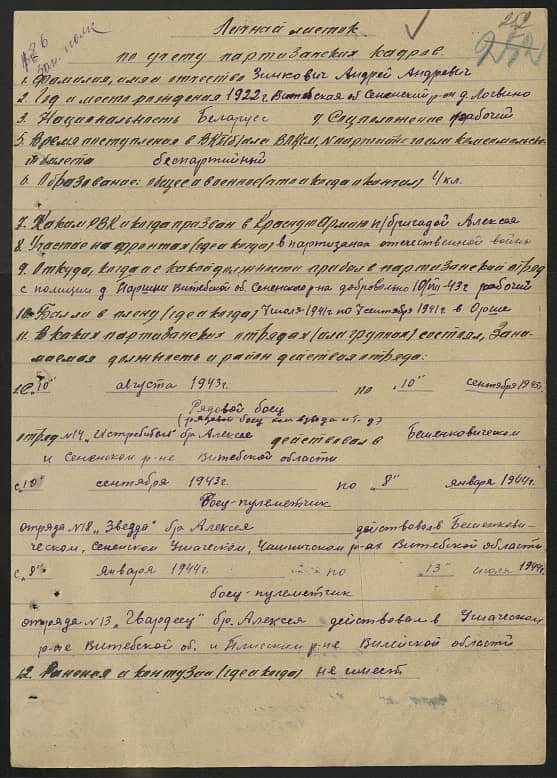 252
252
Личный листок
по учету партизанских кадров.
1. Фамилия, имя и отчество Зинкович Андрей Андревич
2. Год и место рождения 1922 г Витебская об. Сененский р-он д. Логвино
3. Национальность Беларус 4 Соцположение рабочий
5. Время поступления в ВКП(б) или ВЛКСМ, № партийного или комсомольск.
билета беспартийный
6. Образование: общее и военное (что и когда окончил) 4 кл.
7. Каким РВК и когда призван в Красную Армию п/бригадой Алексея
8. Участие на фронтах (где и когда) в партизанах отечественной войны
9. Откуда, когда и с какой должности прибыл в партизанский отряд
с полиции д. Ярошки Витебской об. Сененского р-на добровольно 10/VIII-43 г рабочий
10. Был ли в плену (где и когда) 7 июля 1941 г по 7 сентября 1941 г. в Орше
11. В каких партизанских отрядах (или группах) состоял, зани-
маемая должность и район действия отряда:
с "10" августа 1943 г. по "10" сентября 1943 г.
Рядовой боец
отряд № 14 "Истребитель" бр. Алексея действовал в Бешенковическом
и Сененском р-не Витебской области
с "10" сентября 1943 г. по "8" января 1944 г.
боец-пулеметчик
отряда № 8 "Звезда" бр Алексея действовал в Бешенкови-
ческом, Сененском, Ушачском, Чашничском р-нах Витебской области
с "8" января 1944 г. по "13" июля 1944 г
боец-пулеметчик
отряда № 13 "Гвардеец" бр. Алексея действовал в Ушачском
р-не Витебской об. и Плисском р-не Вилейской области
12. Ранения и контузии (где и когда) не имеет